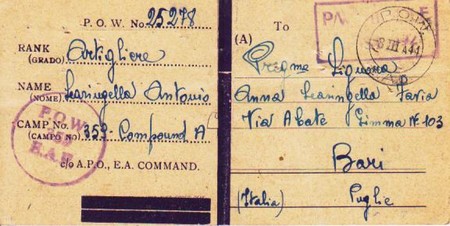 P. O. W. No. 25278
RANK
(GRADO) Artigliere
NAME
(NOME) Scaringella Antonio
CAMP No.
(CAMPO No) 359. Compound A
c/o A.P.O., E.A. COMMAND.
P.O.W.
E.A.
To
(A)
Anna Scaringella
Via Abate Gimma N° 103
Bari
(Italia) Puglie